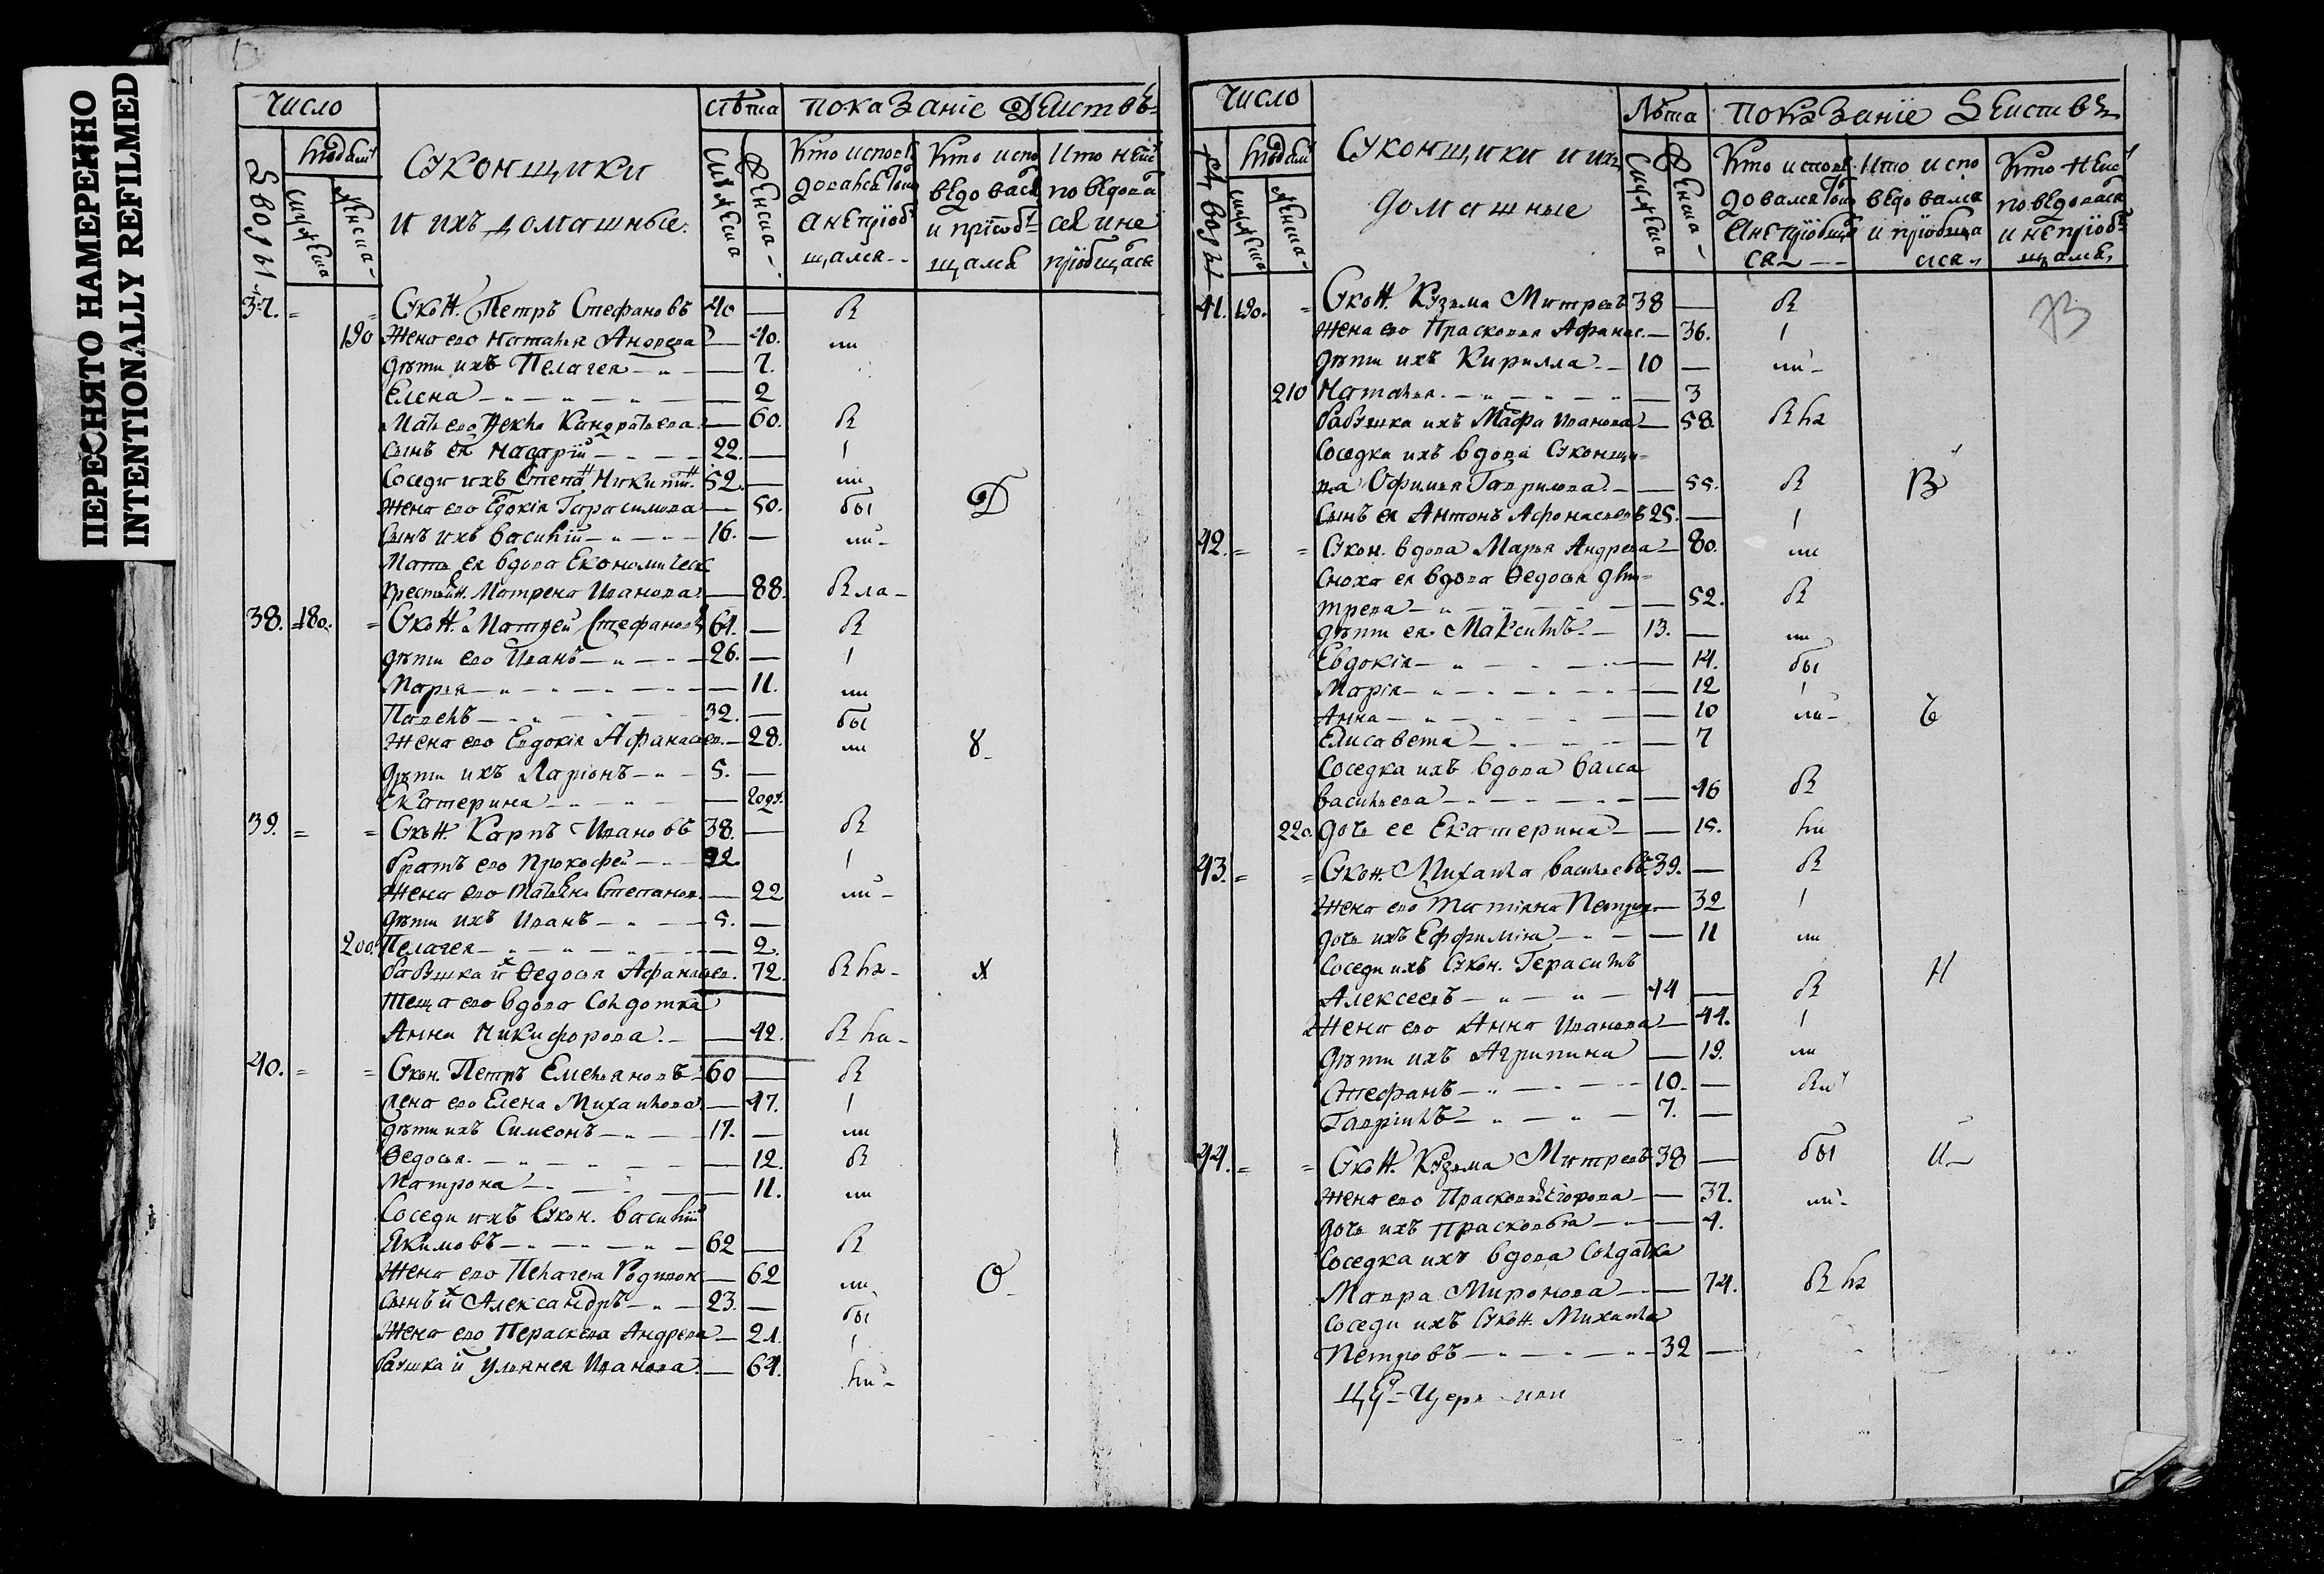 ПЕРЕСНЯТО НАМЕРЕННО
INTENTIONALLY REFILMED
Число
лѣта показанїе Дѣиствъ
людей
Сукон щики
и ихъ домашные.
дворы
Мужеска
Женска
Кто испове довался токмо а не прїоб щался
Кто испо ведовался и прїоб щался
Кто не ис поведова ся и не прїобщася
37. Сукон. Петръ Стефановъ 40
190 Жена его Наталья Андреева 40.
дѣти ихъ Пелагея 7.
Елена 2
Мать его Кондратьева 60.
Сынъ ея 22.
Соседи ихъ Степанъ Никитин. 52.
Жена его Евдокія Гарасимова 50.
Сынъ ихъ Василій 16.
Мать ея вдова Економическ
крестьян. Матрена Иванова 88.
38. 180. Сукон. Матвей Стефановъ 61.
дѣти его Иванъ 26.
Марья 11.
Павелъ 32.
Жена его Евдокія Афанасьев. 28.
дѣти ихъ Ларіонъ 5.
Екатерина 2 год.
39. Сукон. Карпъ Ивановъ 38.
братъ его Прокофей 22
Жена его Татьяна Степанов. 22
дѣти ихъ Иванъ 5.
200. Пелагея 2.
бабушка их Ѳедосья Афанасьев. 72.
теща его вдова Солдатка
Анна Никифорова 42.
40. Сукон. Петръ Емельяновъ 60
жена его Елена Михаилова 47.
дѣти ихъ Симеонъ 17.
Ѳедосья. 12.
Матрона 11.
Соседи ихъ Сукон. Василій
Якимовъ 62
Жена его Пелагея Родивон. 62
Сынъ их Александръ 23.
Жена его Пераскева Андреева 21.
бабушка их Ульянея Иванова 64.
Число
Лѣта показанїе Дѣиствъ
людей
Суконщики и ихъ
домашные
дворы
Мужеска
Женска
Кто испове довался токмо а не прїобща ся
Кто испо ведовался и прїобща лся
Кто не ис поведовася и не прїоб щался
41. 190. Сукон. Кузьма Митреевъ 38
Жена его Прасковья Афанас. 36.
дѣти ихъ Кирилла 10
210 Наталья. 3
бабушка ихъ Марфа Иванова 58.
Соседка ихъ вдова Суконщи=
ка Офимья Гаврилова 55.
Сынъ ея Антонъ Афонасьевъ 25.
42. Сукон. вдова Марья Андреева 80.
сноха ея вдова Ѳедосья Дми=
трева 52.
дѣти ея Максимъ 13.
Евдокія 14.
Марія 12
Анна 10
Елисавета 7
Соседка ихъ вдова Васса
Васильева 46
220. дочь ее Екатерина 15.
43. Сукон. Михаила Васильевъ 39.
Жена его Татіяна Петров. 32
дочь ихъ Еффиміа 11
Соседи ихъ Сукон. Герасимъ
Алексеевъ 44
Жена его Анна Иванова 44.
дѣти ихъ Агрипина 19.
Стефанъ 10.
Гавріилъ 7.
44. Сукон. Кузьма Митреевъ 38
Жена его Прасковья Егорова 37.
дочь ихъ Прасковья 4.
Соседка ихъ вдова Солдатка
Мавра Миронова 74.
Соседи ихъ Сукон. Михаила
Петровъ 32